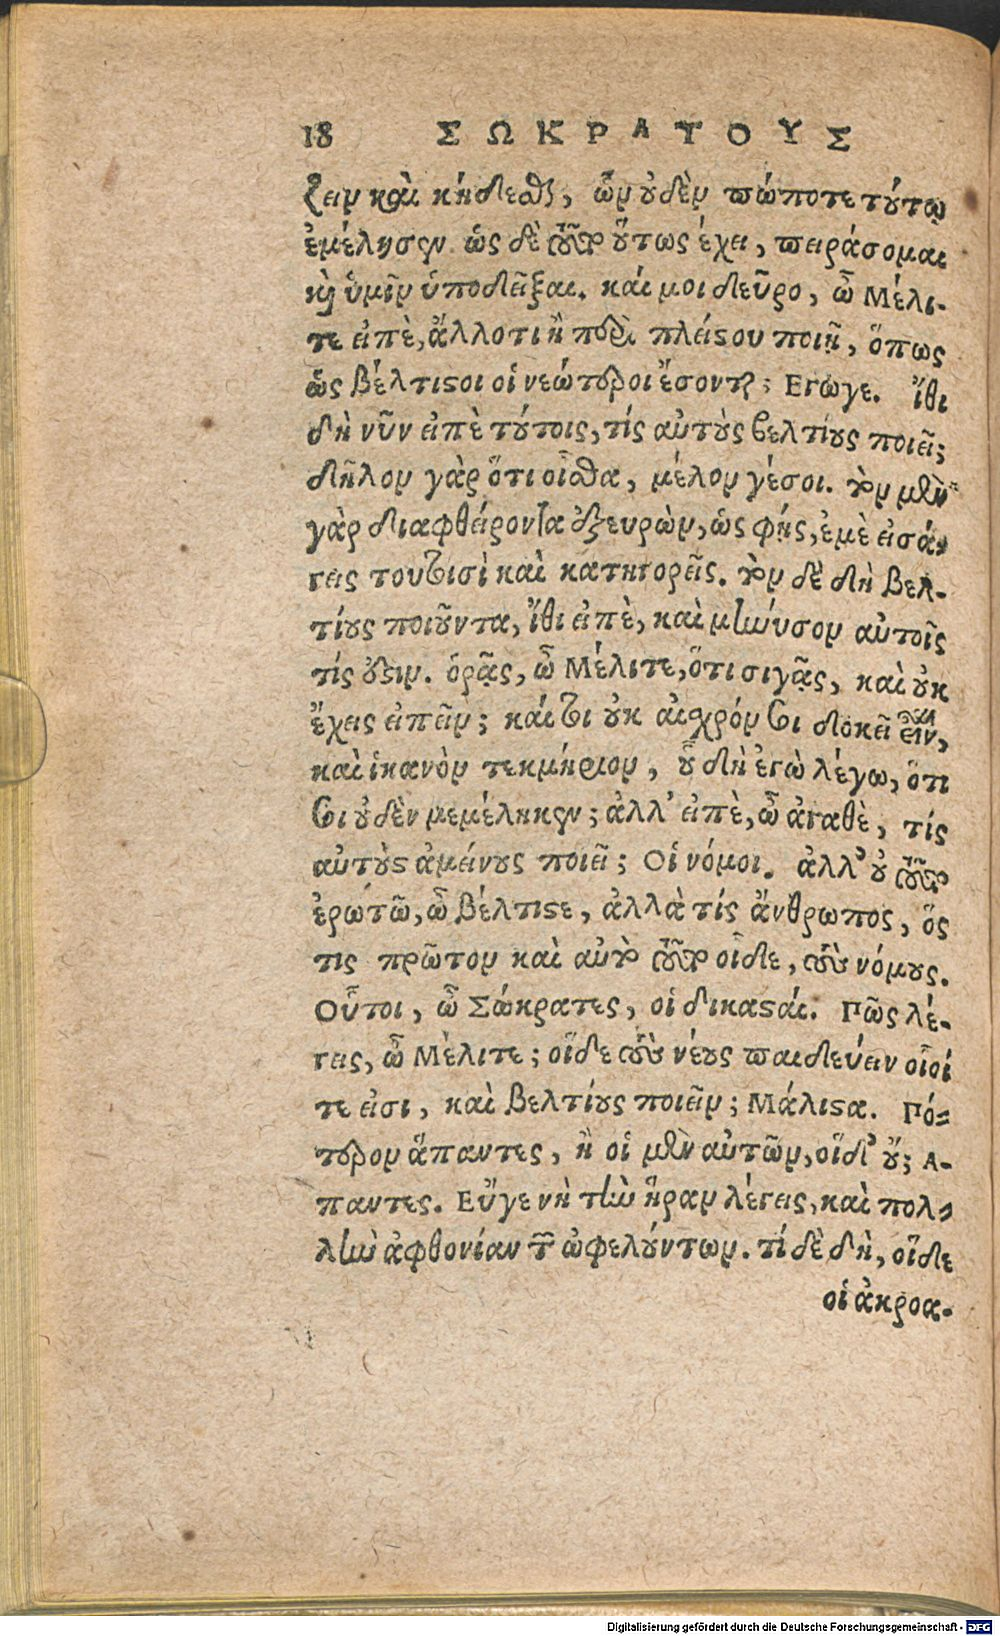 18 ΣΩΚΡΑΤΟΥΣ
ζειν καὶ κήδεσθαι, ὧν οὐδὲν πώποτε τούτῳ
ἐμέλησεν. ὡς δὲ τοῦτο οὕτως ἔχει, πειράσομαι
καὶ ὑμῖν ὑποδεῖξαι. καί μοι δεῦρο, ὦ Μέλι-
τε εἰπὲ, ἄλλοτι ἢ περὶ πλείστου ποιῇ, ὅπως
ὡς βέλτιστοι οἱ νεώτεροι ἔσονται; Εγωγε. ἴθι
δὴ νῦν εἰπὲ τούτοις, τίς αὐτοὺς βελτίους ποιεῖ;
δῆλον γὰρ ὅτι οἶσθα, μέλον γέσοι. τὸν μὲν
γὰρ διαφθείροντα ἐξευρὼν, ὡς φῂς, ἐμὲ εἰσά-
γεις τουτοισὶ καὶ κατηγορεῖς. τὸν δὲ δὴ βελ-
τίους ποιοῦντα, ἴθι εἰπὲ, καὶ μήνυσον αὐτοῖς
τίς ὅστιν. ὁρᾷς, ὦ Μέλιτε, ὅτι σιγᾷς, καὶ οὐκ
ἔχεις εἰπεῖν; καίτοι οὐκ αἰσχρόν σοι δοκεῖ εἶναι,
καὶ ἱκανὸν τεκμήριον, οὗ δὴ ἐγὼ λέγω, ὅτι
σοι οὐδὲν μεμέληκεν; ἀλλ' εἰπὲ, ὦ ἀγαθὲ, τίς
αὐτοὺς ἀμείνους ποιεῖ; Οἱ νόμοι. ἀλλ' οὐ τοῦτο
ἐρωτῶ, ὦ βέλτιστε, ἀλλὰ τίς ἄνθρωπος, ὅς
τις πρῶτον καὶ αὐτὸ τοῦτο οἶδε, τοὺς νόμους.
Οὗτοι, ὦ Σώκρατες, οἱ δικασταί. Πῶς λέ-
γεις, ὦ Μέλιτε; οἵδε τοὺς νέους παιδεύειν οἷοί
τε εἰσι, καὶ βελτίους ποιεῖν; Μάλιστα. Πό-
τερον ἅπαντες, ἢ οἱ μὲν αὐτῶν, οἵδ' οὔ; Α-
παντες. Εὖγε νὴ τὴν ἥραν λέγεις, καὶ πολ-
λὴν ἀφθονίαν τῶν ὠφελούντων. τί δὲ δὴ, οἵδε
οἱ ἀκροα-
Digitalisierung gefördert durch die Deutsche Forschungsgemeinschaft - DFG